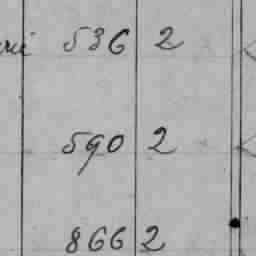 536 2
590 2
866 2